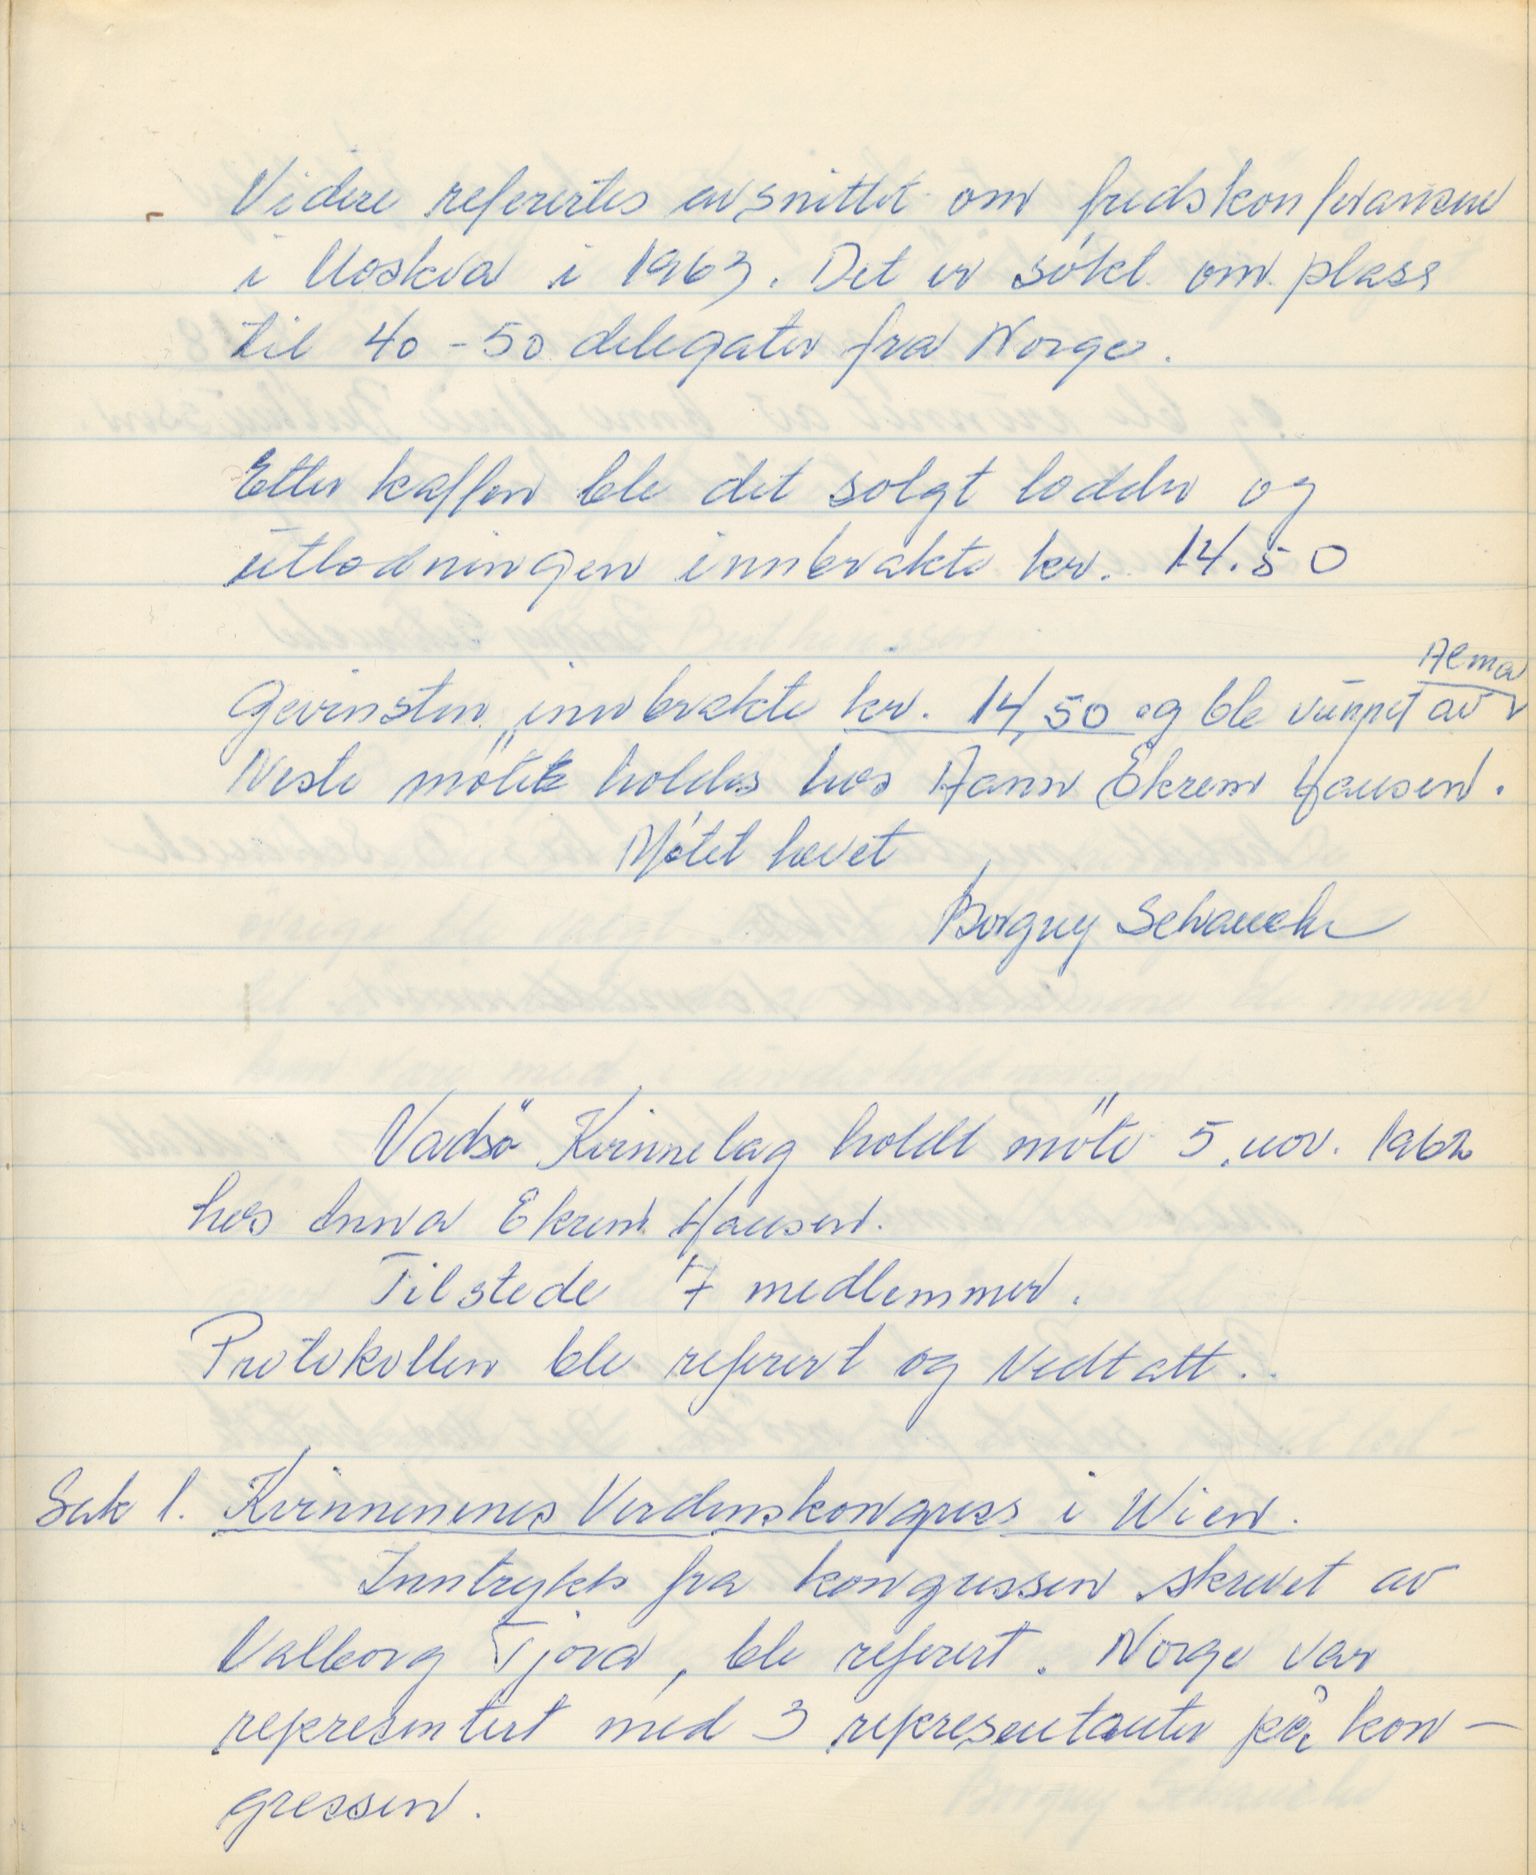 Videre refertes avsnittet om fredskonferansen
i Moskva i 1963. Det er søkt om plass
til 40-50 delegater fra Norge.
Etter kaffen ble det solgt lodder og
utlodningen innbrakte kr. 14.50
Alma
Gevinsten innbrakte kr. 14,50 og ble vunnet av
Neste möte holdes hos Anna Ekrem Hansen.
Møtet hevet
Borgny Schanche
Vadsö Kvinnelag holdt möte 5. nov. 1962
hos Anna Ekrem Hansen.
Tilstede 7 medlemmer.
Protokollen ble referert og Vedtatt.
Sak 1. Kvinnenenes Verdenskongress i Wien.
Inntrykk fra kongressen skrevet av
Valborg Tjora, ble referert. Norge var
representert med 3 representanter på kon-
gressen.